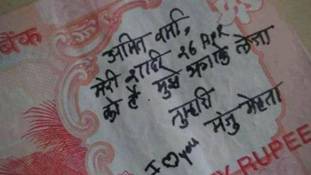 बैंक
अमित वर्मा,
मेरी शादी 26 Apr
को है. मुझे भगाके लेजा
तुम्हारी
मंजु मेहता
I ♡ you
RUPEE